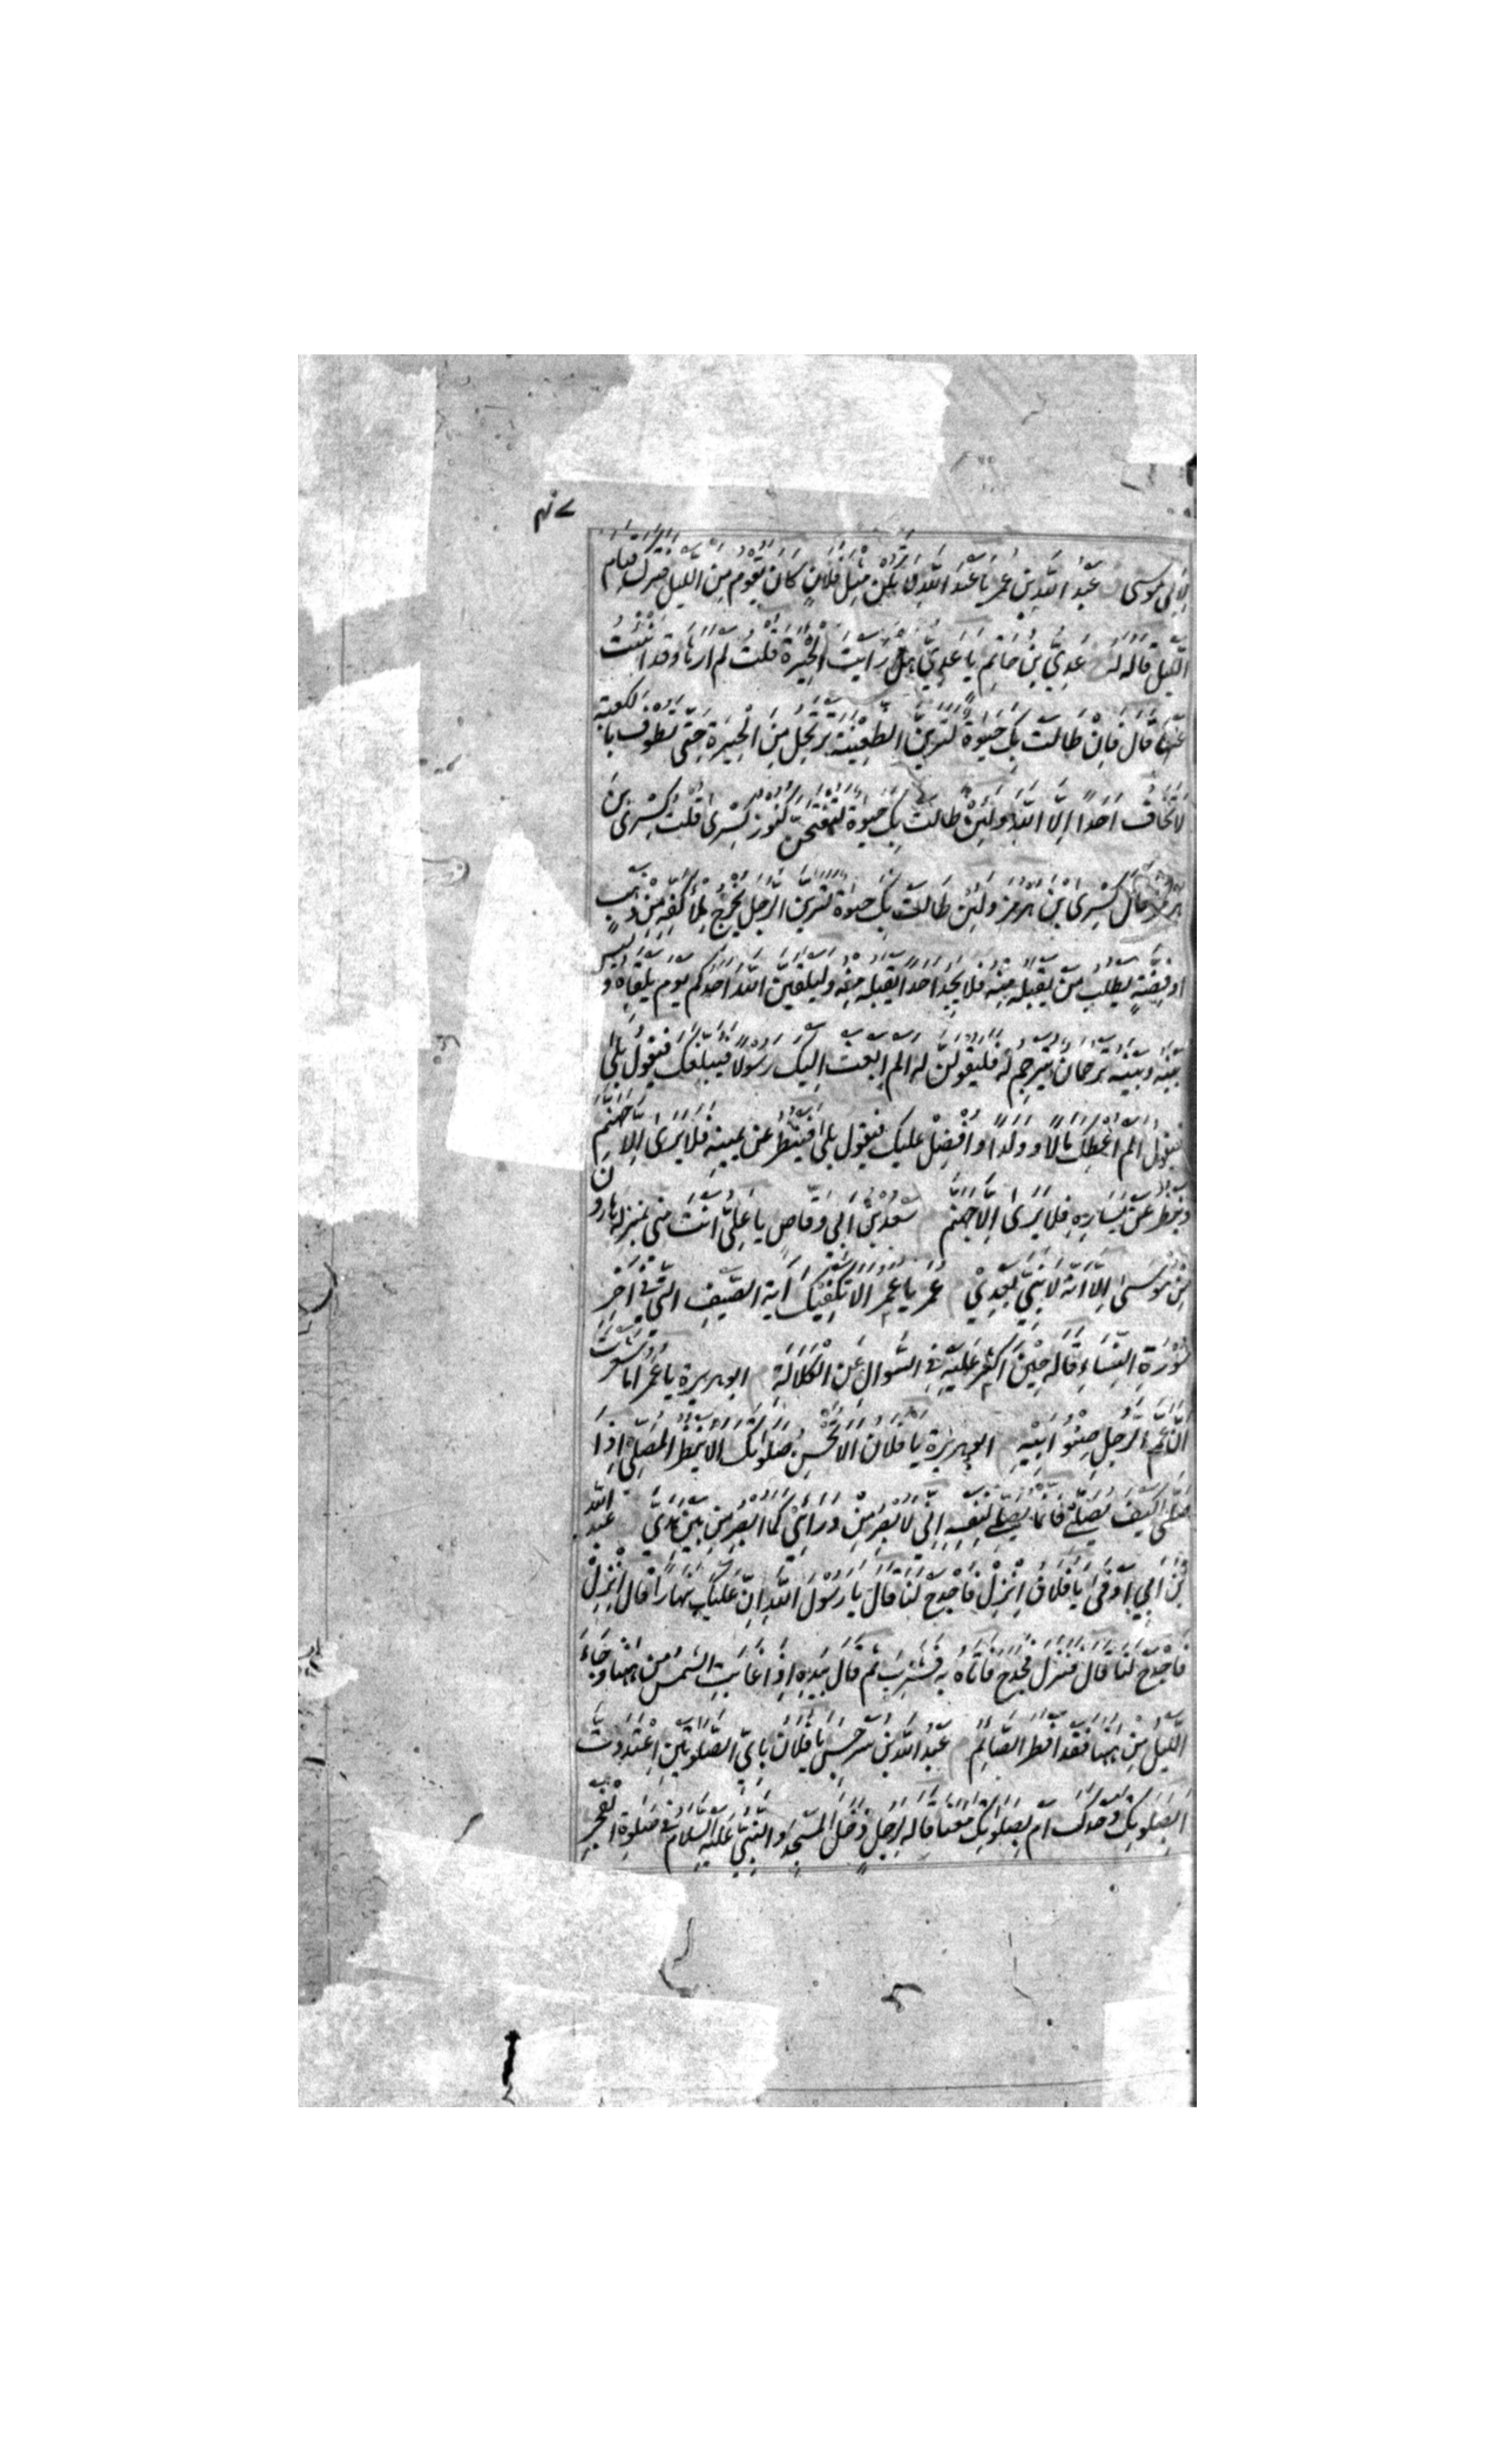 لابى موسى عبد الله بن عمر يا عبد الله لا تكن مثل فلان كان يقوم من الليل فترك قيام
الليل قاله له عدى بن حاتم يا عدى هل رايت الحيرة قلت لم ارها وقد انبئت
عنها قال فان طالت بك حيوة لترين الظعينة ترتحل من الحيرة حتى تطوف بالكعبة
لا تخاف احدا الا الله ولئن طالت بك حيوة لتفتحن كنوز كسرى قلت كسرى بن
هرمز قال كسرى ابن هرمز ولئن طالت بك حيوة لترين الرجل يخرج ملأ كفه من ذهب
او فضة يطلب من يقبله منه فلا يجد احدا يقبله منه وليلقين الله احدكم يوم يلقاه وليس
بينه وبينه ترجمان يترجم له فليقولن له الم ابعث اليك رسولا فيبلغك فيقول بلى
فيقول الم اعطك مالا وولدا وافضل عليك فيقول بلى فينظر عن يمينه فلا يرى الا جهنم
وينظر عن يساره فلا يرى الا جهنم سعد بن ابى وقاص يا على انت منى بمنزلة هارون
من موسى الا انه لا نبى بعدى عمر يا عمر الا تكفيك آية الصيف التى فى آخر
سورة النساء قاله حين اكثر عليه فى السوال عن الكلالة ابو هريرة يا عمر اما شعرت
ان عم الرجل صنو ابيه ابو هريرة يا فلان الا تحسن صلوتك الا ينظر المصلى اذا
صلى كيف يصلى فانما يصلى لنفسه انى لابصر من ورائى كما ابصر من بين يدى عبد الله
بن ابى اوفى يا فلان انزل فاجدح لنا قال يا رسول الله ان عليك نهارا قال انزل
فاجدح لنا قال فنزل فجدح فاتاه به فشرب ثم قال بيده اذا غابت الشمس من ههنا وجاء
الليل من ههنا فقد افطر الصائم عبد الله بن سرجس يا فلان باى الصلوتين اعتددت
ابصلوتك وحدك ام بصلوتك معنا قاله لرجل دخل المسجد والنبى عليه السلام فى صلوة الفجر